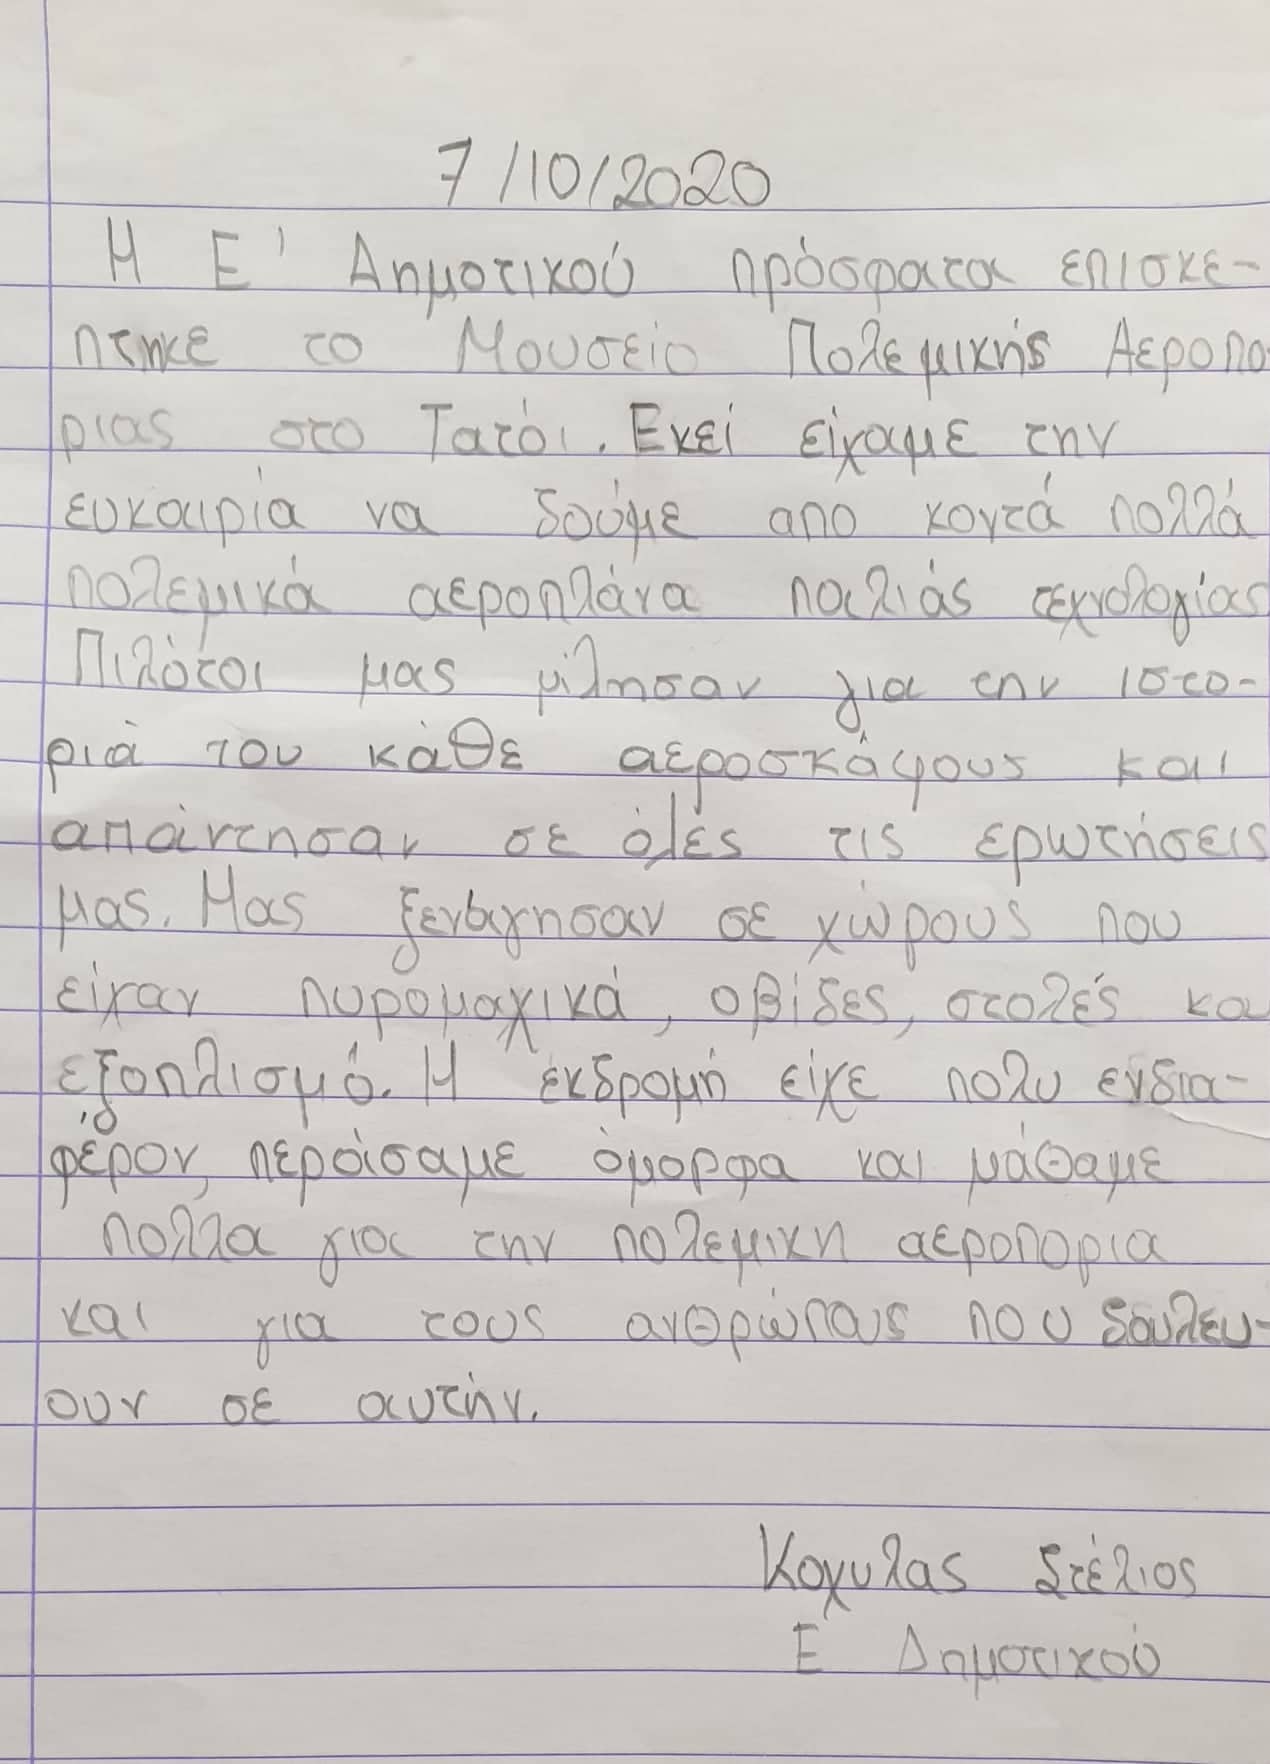 7/10/2020
Η Ε' Δημοτικού πρόσφατα επισκέ-
πτηκε το Μουσείο Πολεμικής Αεροπο
ριας στο Τατόι. Εκεί είχαμε την
ευκαιρία να δούμε απο κοντά πολλά
πολεμικά αεροπλάνα παλιάς τεχνολογίας
Πιλότοι μας μίλησαν για την ιστο-
ριά του κάθε αεροσκάφους και
απάντησαν σε όλες τις ερωτήσεις
μας. Μας ξενάγησαν σε χώρους που
είχαν πυρομαχικά, οβίδες, στολές κα
εξοπλισμό. Η έκδρομή είχε πολυ ενδια-
φέρον, περάσαμε όμορφα και μάθαμε
πολλα για την πολεμικη αεροπορια
και για τους ανθρώπους που δουλευ-
ουν σε αυτήν.
Κοχυλας Στέλιος
Ε Δημοτικού